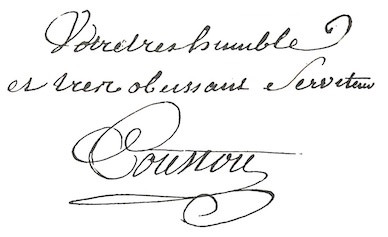 Votre tres humble
et tres obeissant Serviteur
Coustou